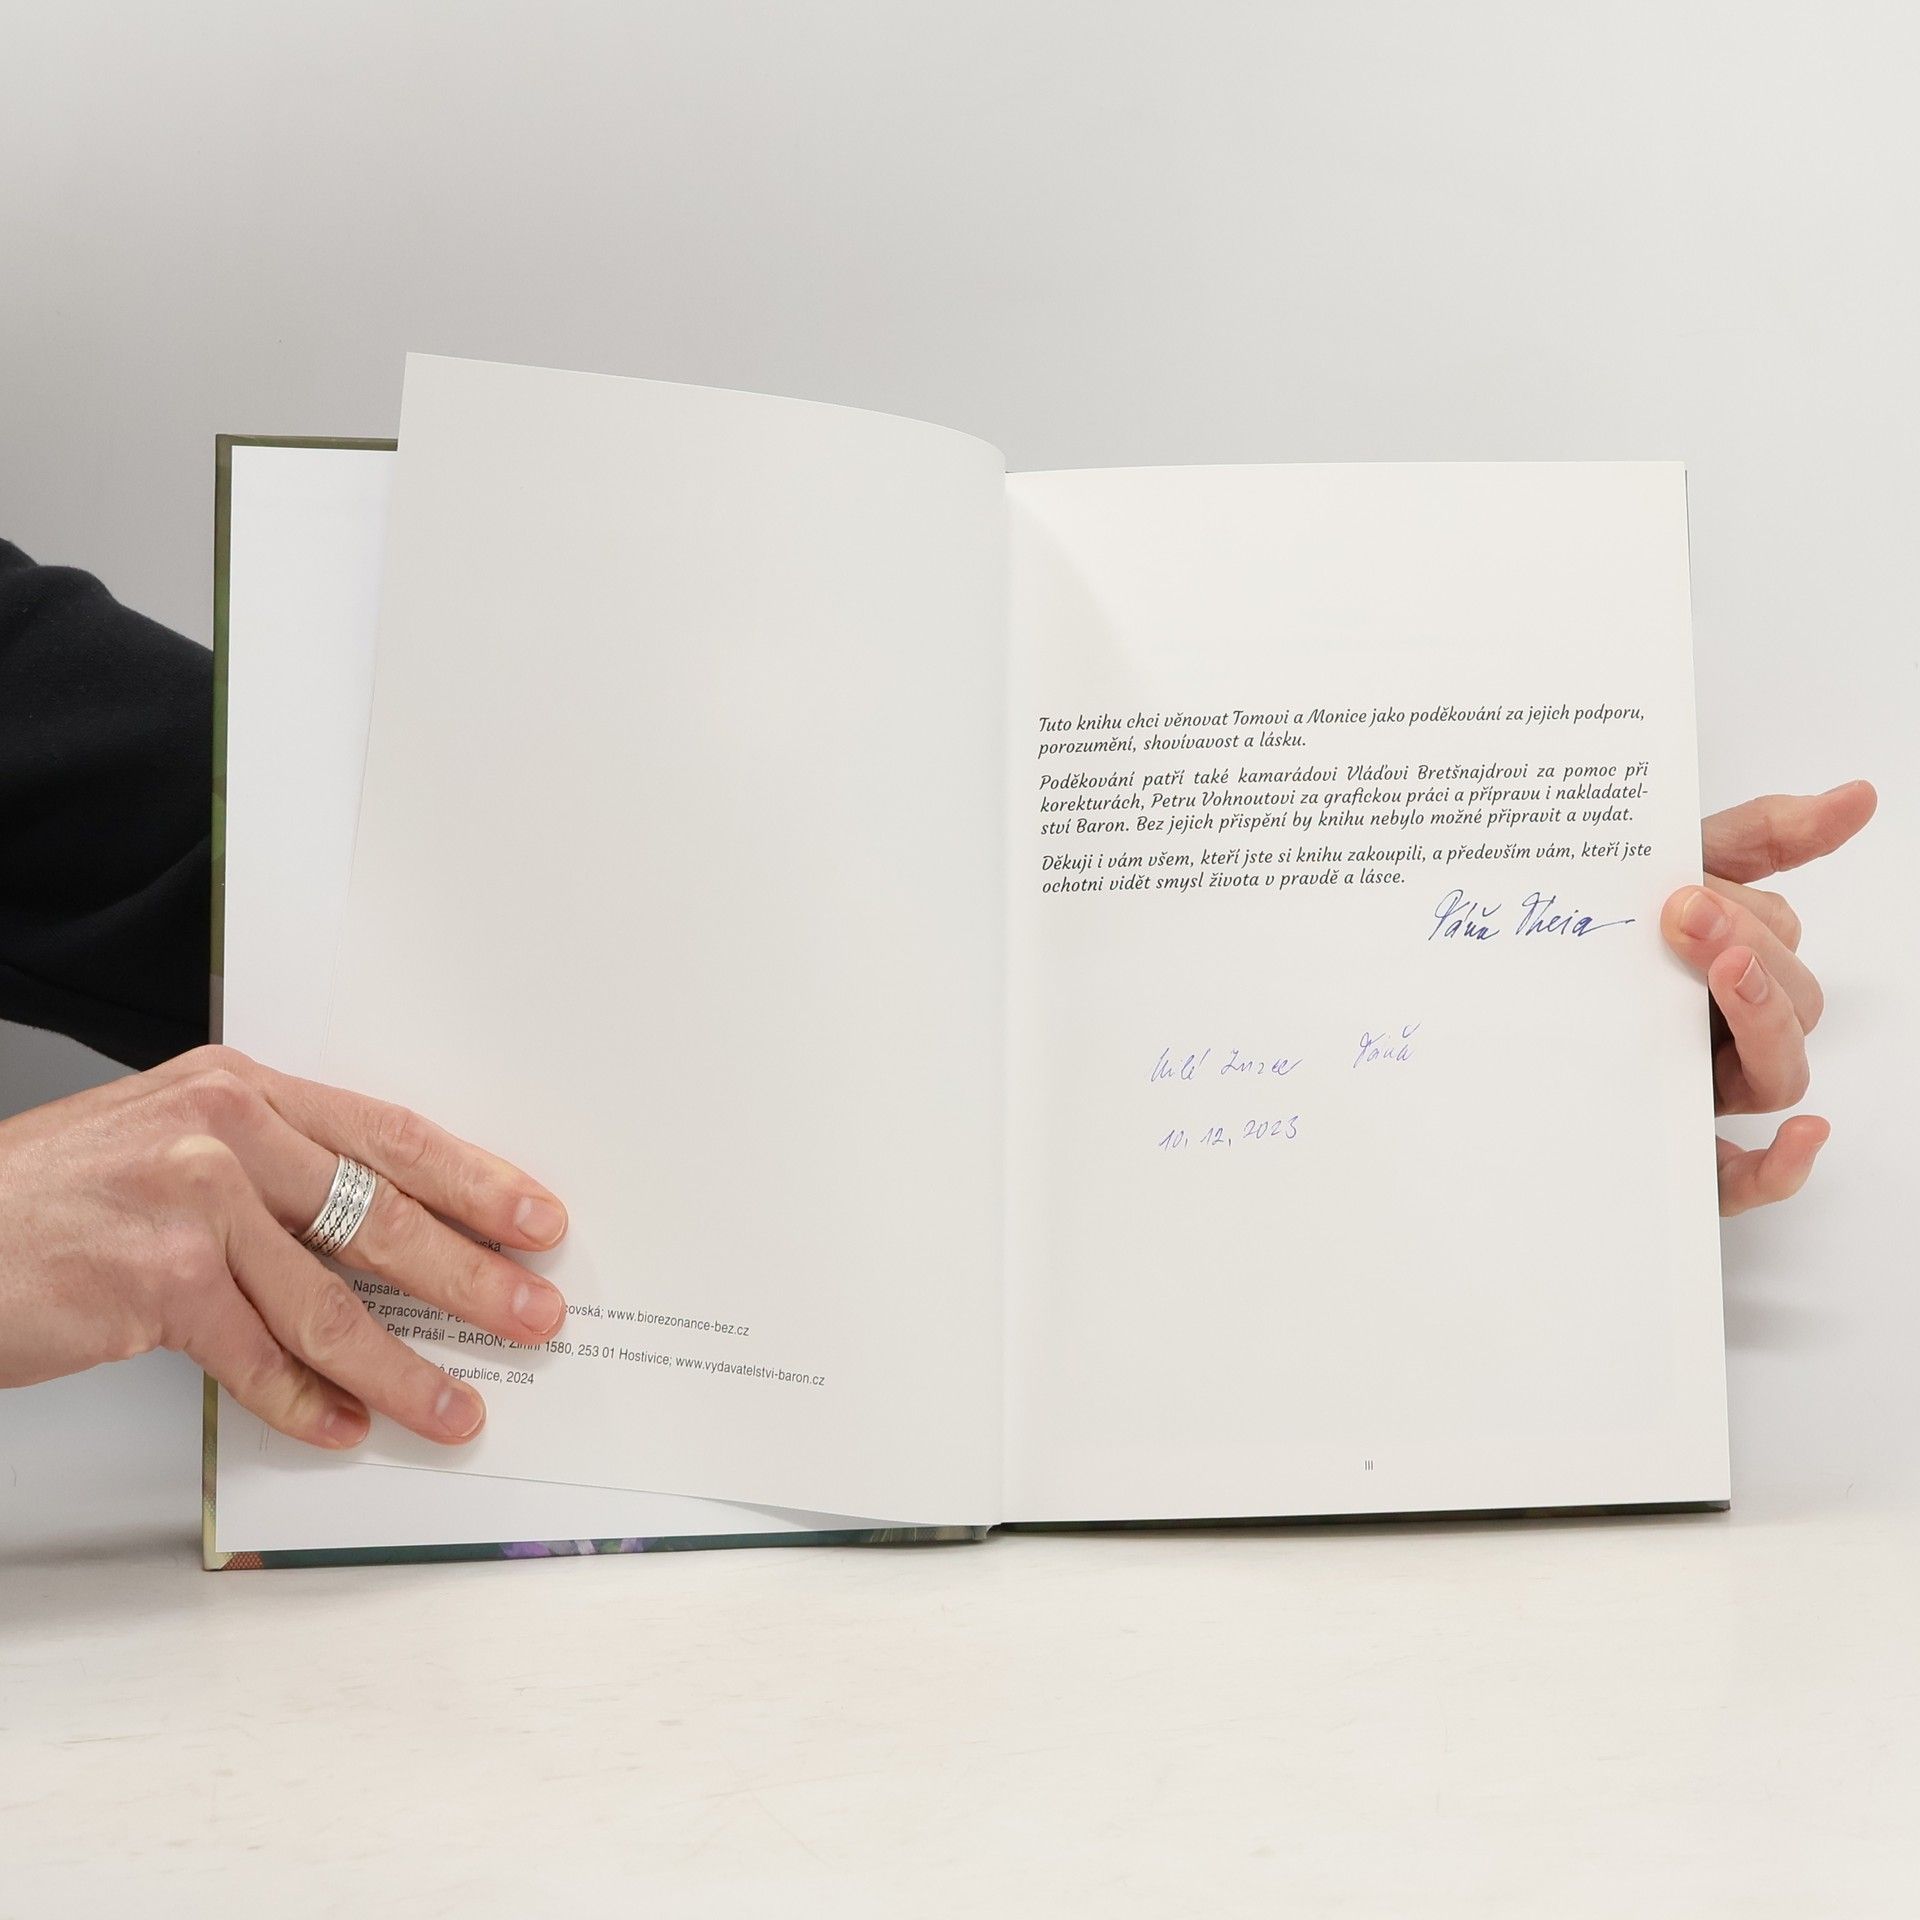 vská
Napsala a
TP zpracování: Pe covská; www.biorezonance-bez.cz
Petr Prášil – BARON; Zimní 1580, 253 01 Hostivice; www.vydavatelstvi-baron.cz
é republice, 2024
Tuto knihu chci věnovat Tomovi a Monice jako poděkování za jejich podporu,
porozumění, shovívavost a lásku.
Poděkování patří také kamarádovi Vláďovi Bretšnajdrovi za pomoc při
korekturách, Petru Vohnoutovi za grafickou práci a přípravu i nakladatel-
ství Baron. Bez jejich přispění by knihu nebylo možné připravit a vydat.
Děkuji i vám všem, kteří jste si knihu zakoupili, a především vám, kteří jste
ochotni vidět smysl života v pravdě a lásce.
Táňa Theia
Milé Zuzce Táňa
10. 12. 2023
III